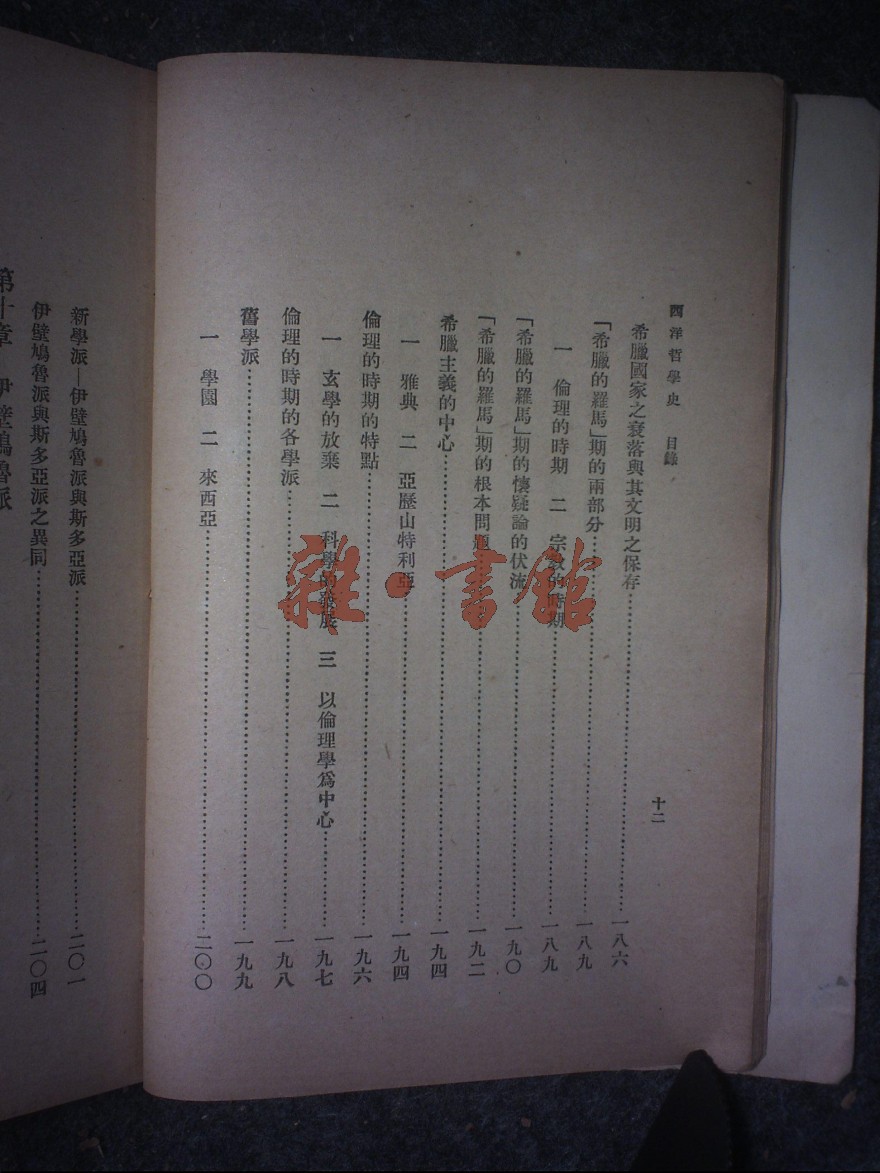 西洋哲學史 目錄 十二
希臘國家之衰落與其文明之保存……一八六
「希臘的羅馬」期的兩部分……一八九
一 倫理的時期 二 宗教的時期……一八九
「希臘的羅馬」期的懷疑論的伏流……一九〇
「希臘的羅馬」期的根本問題……一九二
希臘主義的中心……一九四
一 雅典 二 亞歷山特利亞……一九四
倫理的時期的特點……一九六
一 玄學的放棄 二 科學的發展 三 以倫理學爲中心……一九七
倫理的時期的各學派……一九八
舊學派……一九九
一 學園 二 來西亞……二〇〇
新學派—伊壁鳩魯派與斯多亞派……二〇一
伊壁鳩魯派與斯多亞派之異同……二〇四
第十章 伊壁鳩魯派
雜·書館